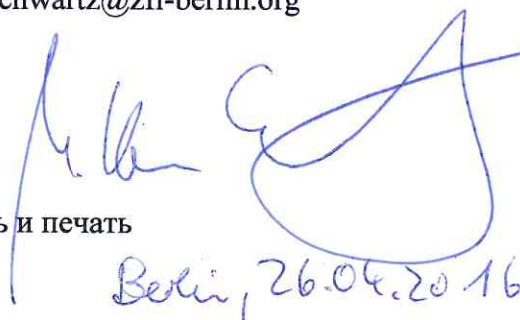 chwartz@zff-berlin.org
ь и печать
Berlin, 26.04.2016